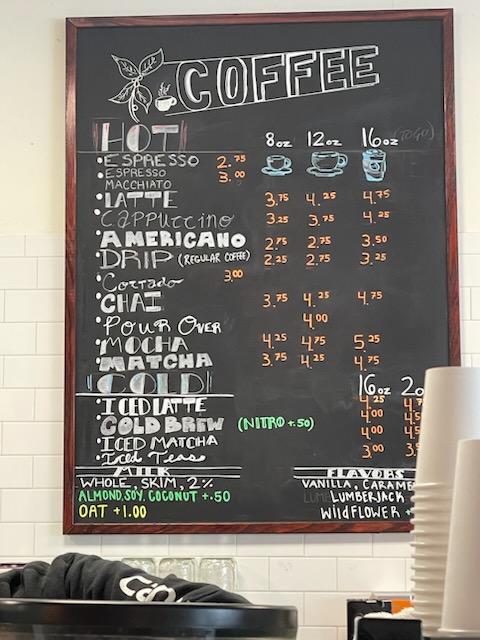 COFFEE
HOT 8oz 12oz 16oz (TO GO)
• ESPRESSO 2.75
• ESPRESSO MACCHIATO 3.00
• LATTE 3.75 4.25 4.75
• Cappuccino 3.25 3.75 4.25
• AMERICANO 2.75 2.75 3.50
• DRIP (REGULAR COFFEE) 2.25 2.75 3.25
• Cortado 3.00
• CHAI 3.75 4.25 4.75
• POUR OVER 4.00
• MOCHA 4.25 4.75 5.25
• MATCHA 3.75 4.25 4.75
COLD 16oz
• ICED LATTE 4.25
• COLD BREW (NITRO +.50) 4.00
• ICED MATCHA 4.00
• Iced Teas 3.00
MILK
WHOLE, SKIM, 2%
ALMOND, SOY, COCONUT +.50
OAT +1.00
FLAVORS
VANILLA, CARAME
LUMBERJACK
WILDFLOWER +